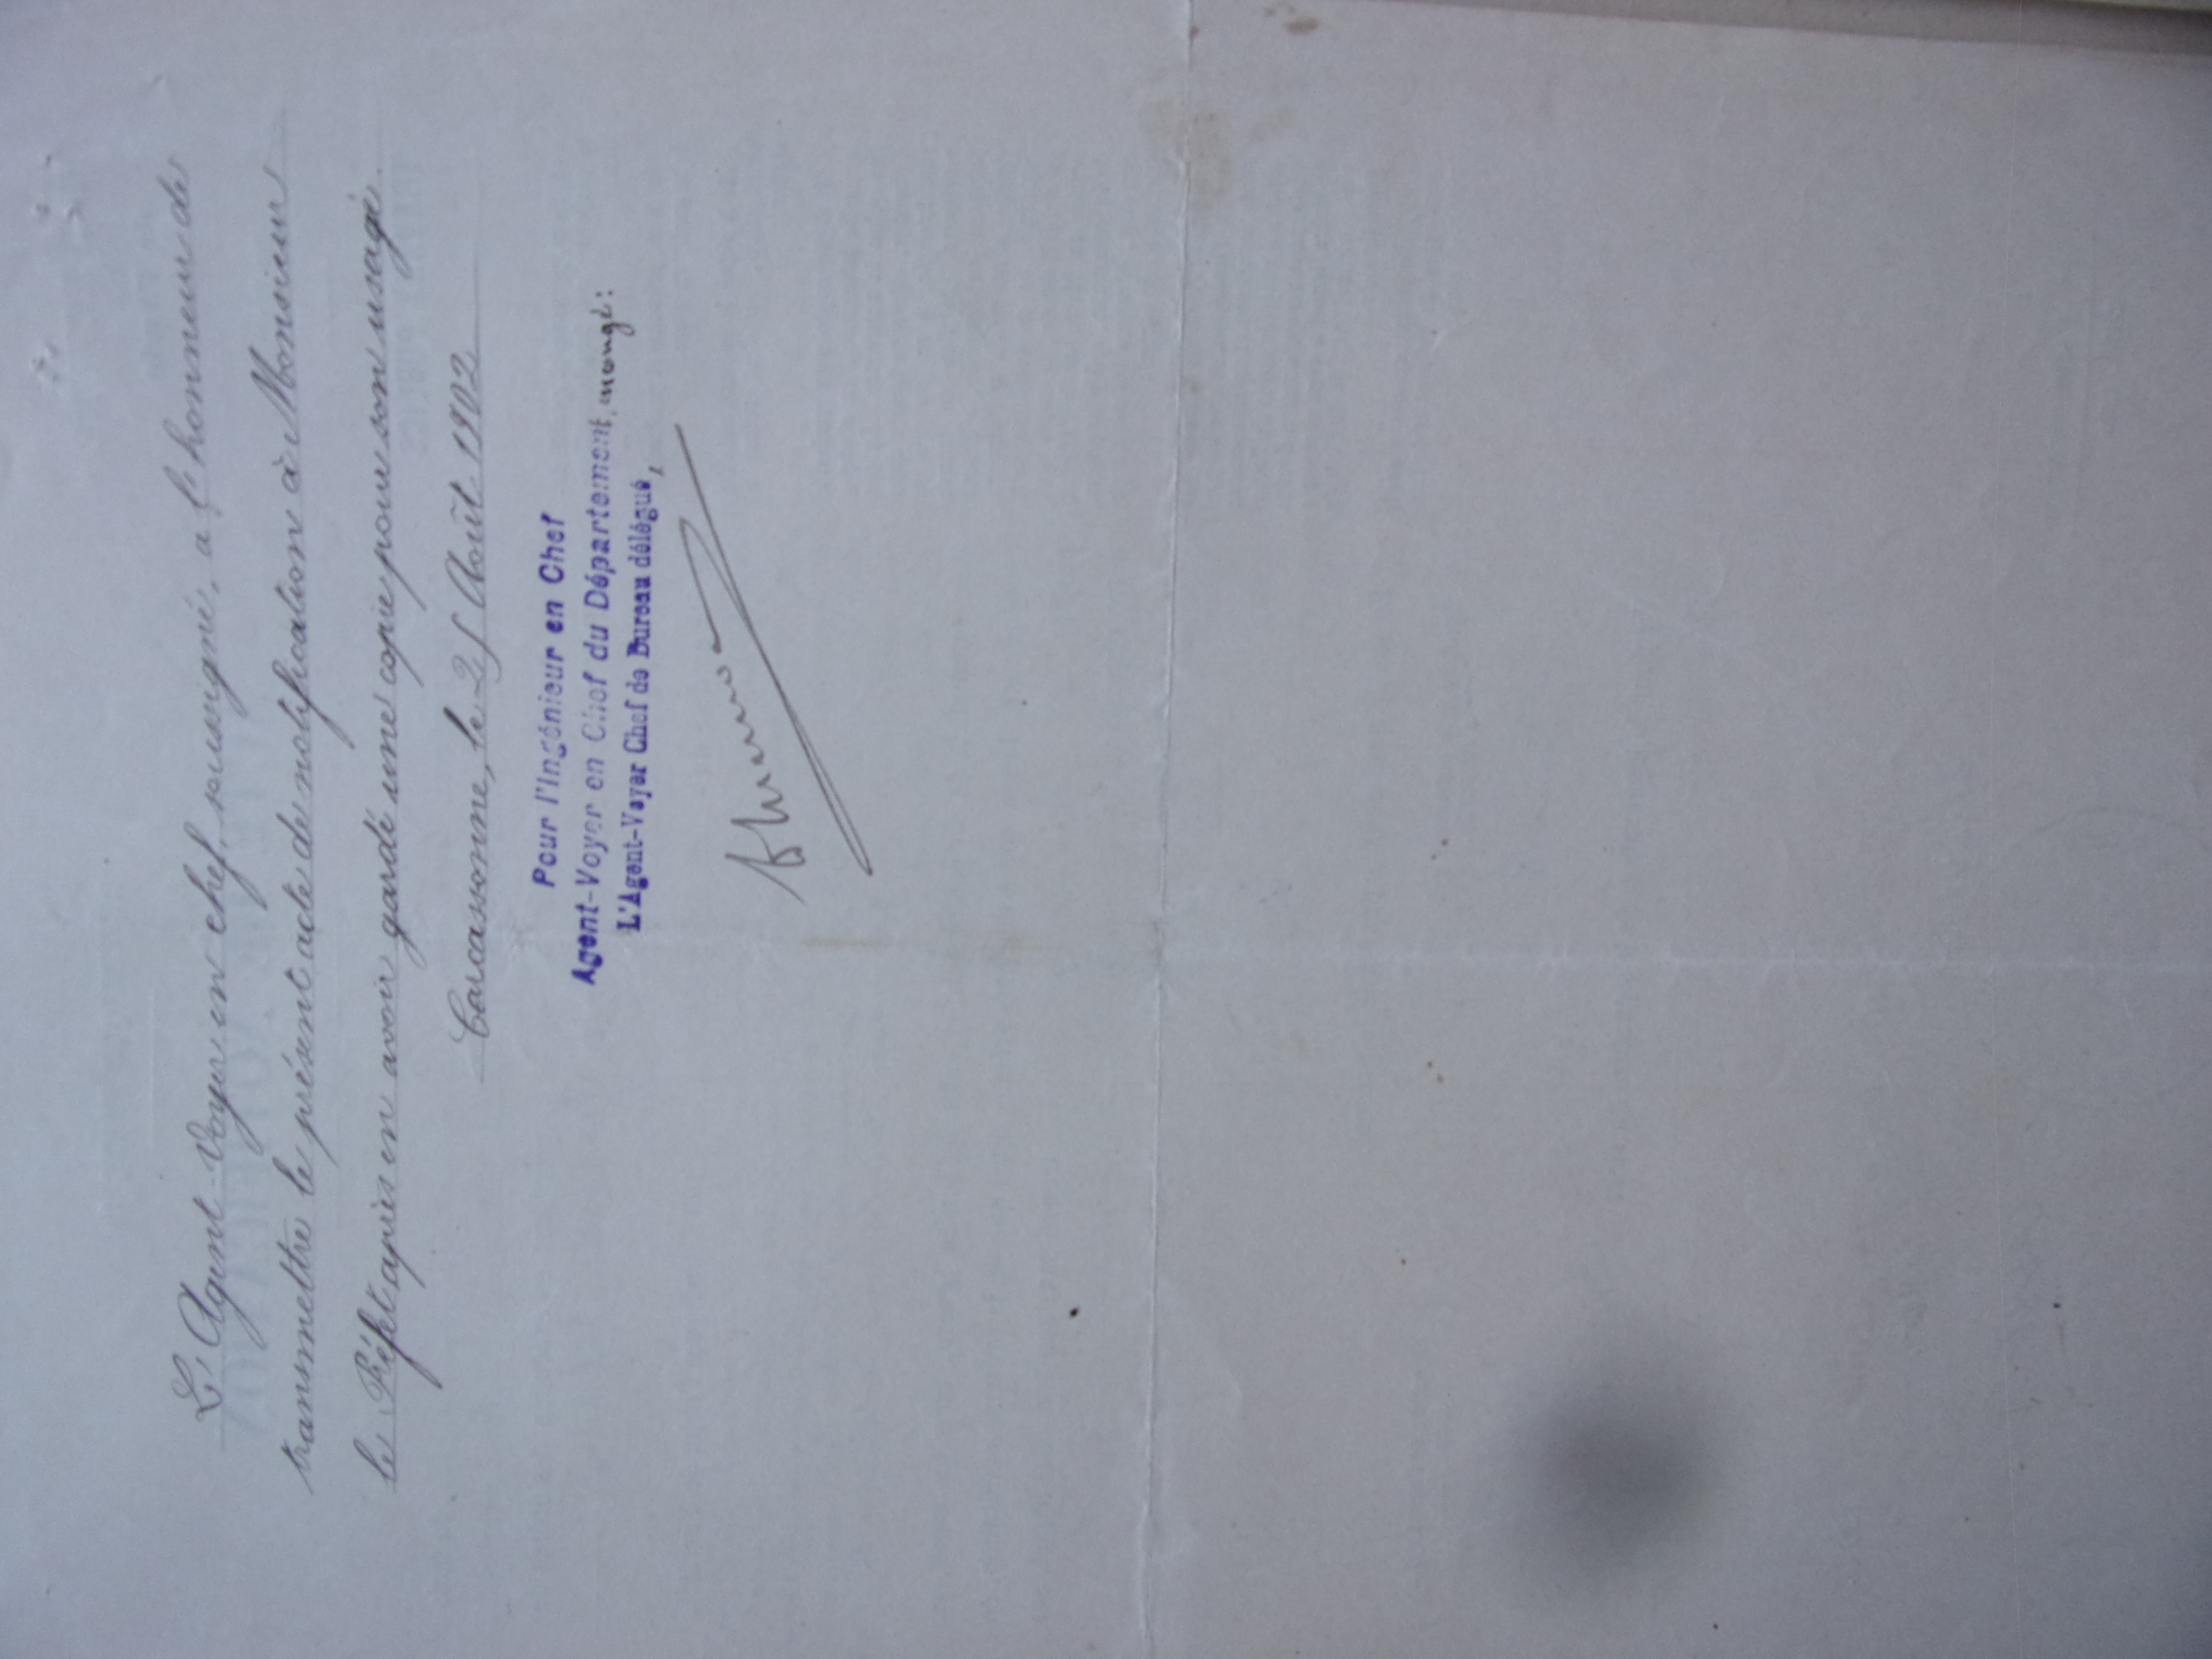 L'Agent-Voyer en chef, soussigné, a l'honneur de
transmettre le présent acte de notification à Monsieur
le Préfet après en avoir gardé une copie pour son usage.
Carcassonne, le 25 Août 1902
Pour l'Ingénieur en Chef
Agent-Voyer en Chef du Département,
L'Agent-Voyer Chef de Bureau délégué,